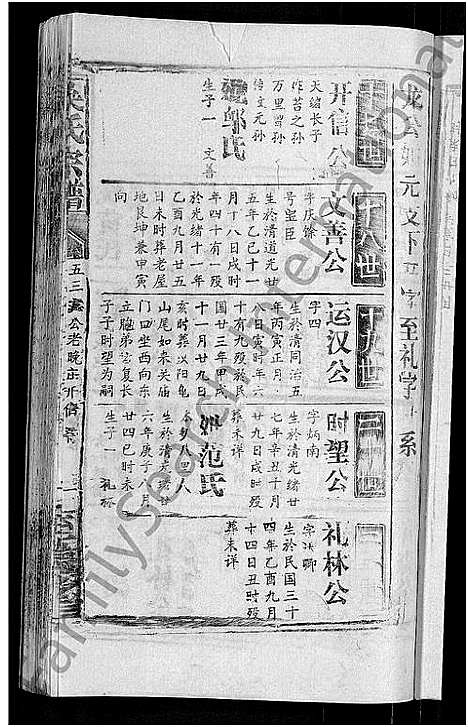 元文下
字至礼字
系
十七世
开信公
天绪长子
咋苔之孙
万里曾孙
传文元孙
邹氏
生子一 文善
十八世
文善公
字庆锋
号圣臣
生於清道光廿
五年乙巳十一
月十八日戌时
年四十有一殁
於光绪十一年
乙酉九月廿五
日未时葬老屋
地艮坤兼申寅
向
十九世
运汉公
字四
生於清同治五
年丙寅正月初
八日寅时年六
十有九殁於民
国廿三年甲戌
十一月廿九日
亥时葬汉阳龟
山尾如泰关庙
门口坐西向东
立胞弟运复长
子子时望为嗣
时望公
字炳南
生於清光绪廿
七年辛丑十月
廿九日戌时殁
葬未详
姚范氏
生於清光绪廿
六年庚子八月
廿四巳时未
生子一 礼林
礼林公
生於民国三十
四年乙酉九月
十四日丑时殁
葬未详
吴氏宗谱
五三
公老晚庄开信系
FamilySearch International